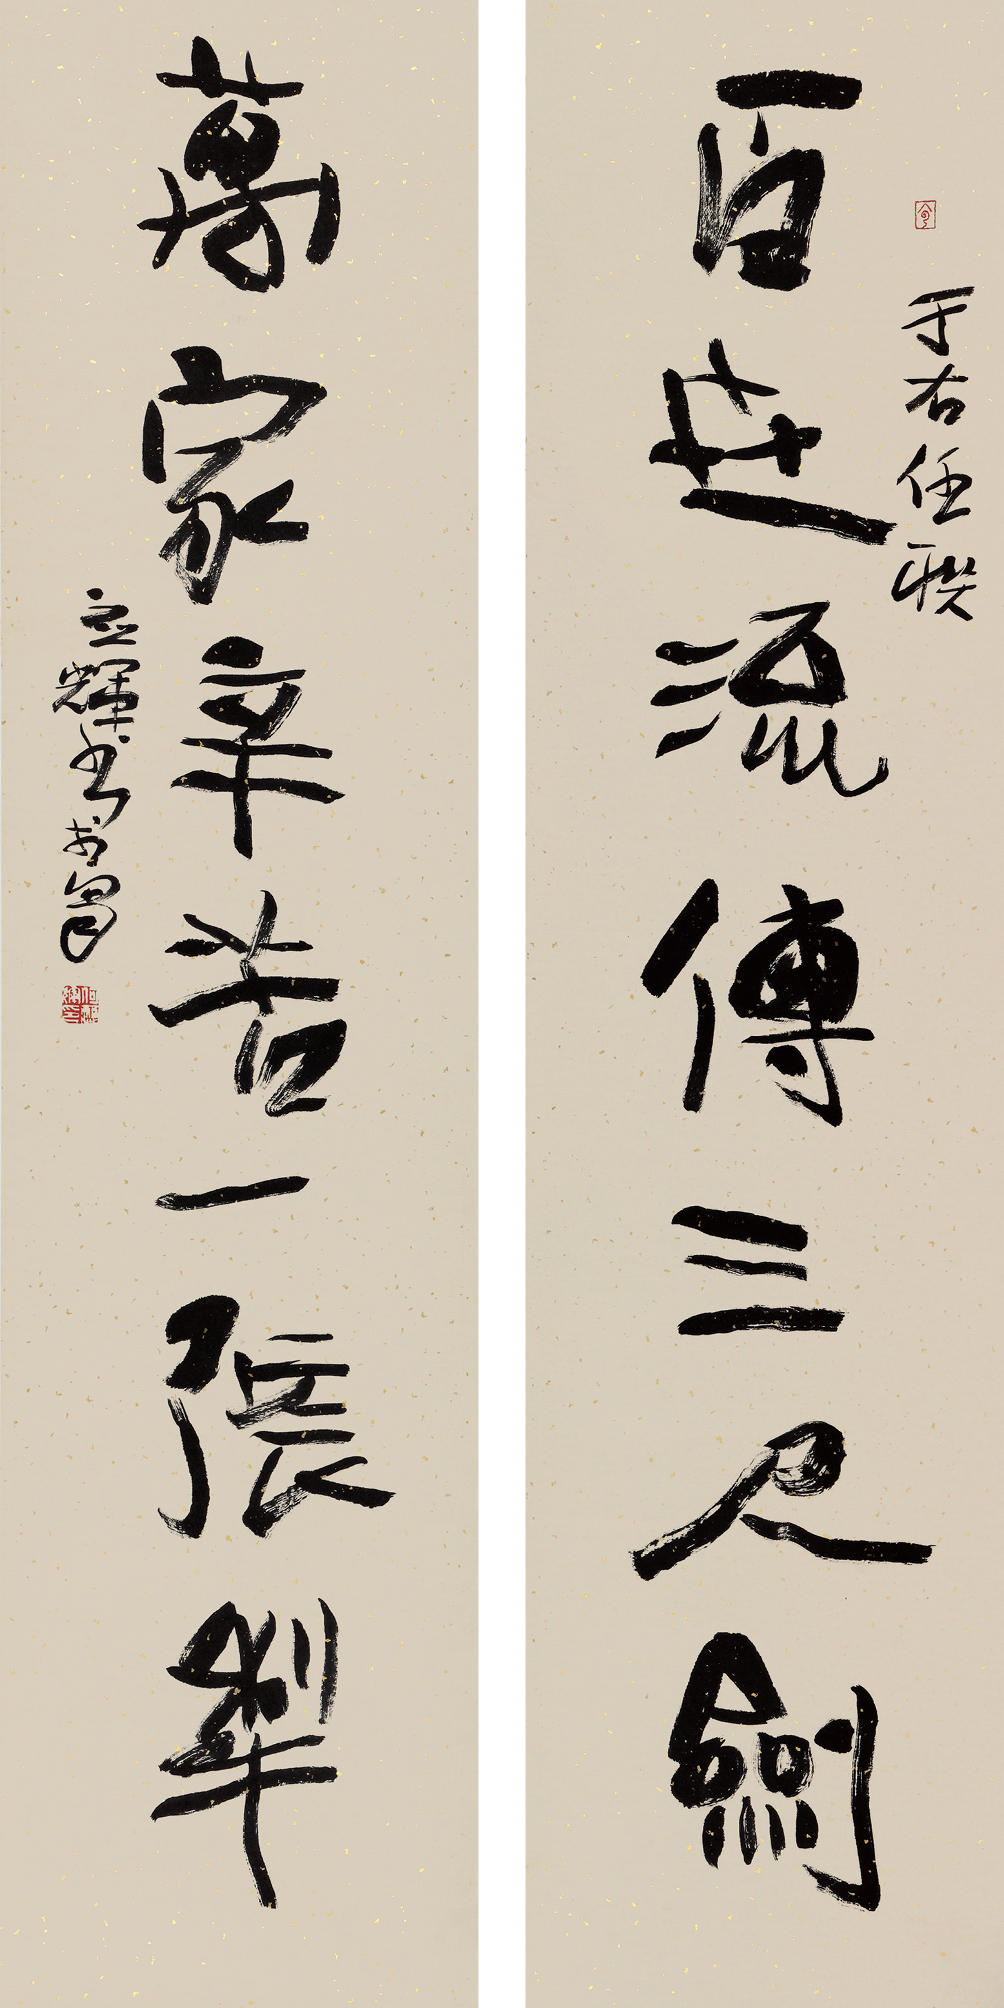 于右任联
百世流傳三尺劍
萬家辛苦一張犁
立輝書於粤